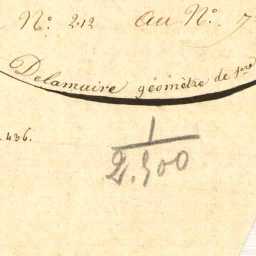 N.º 212 au N.º 7
Delamaire géomètre de 1.ere
436.
1
2.500